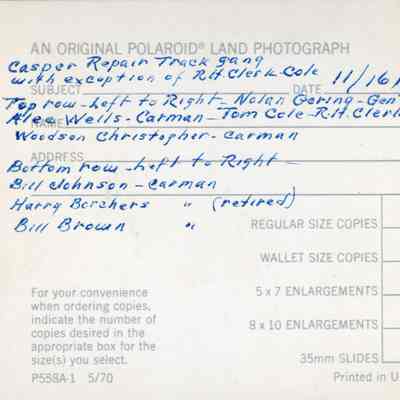 AN ORIGINAL POLAROID® LAND PHOTOGRAPH
Casper Repair Track gang
with exception of R.H. Clerk-Cole
SUBJECT DATE 11/16/
Top row - Left to Right - Nolan Gering - Gen
NAME Alee Wells - Carman - Tom Cole - R.H. Clerk
Woodson Christopher - Carman
ADDRESS
Bottom row - Left to Right -
Bill Johnson - Carman
Harry Borchers " (retired)
Bill Brown "
REGULAR SIZE COPIES
WALLET SIZE COPIES
5 x 7 ENLARGEMENTS
8 x 10 ENLARGEMENTS
35mm SLIDES
For your convenience
when ordering copies,
indicate the number of
copies desired in the
appropriate box for the
size(s) you select.
P558A-1 5/70
Printed in U